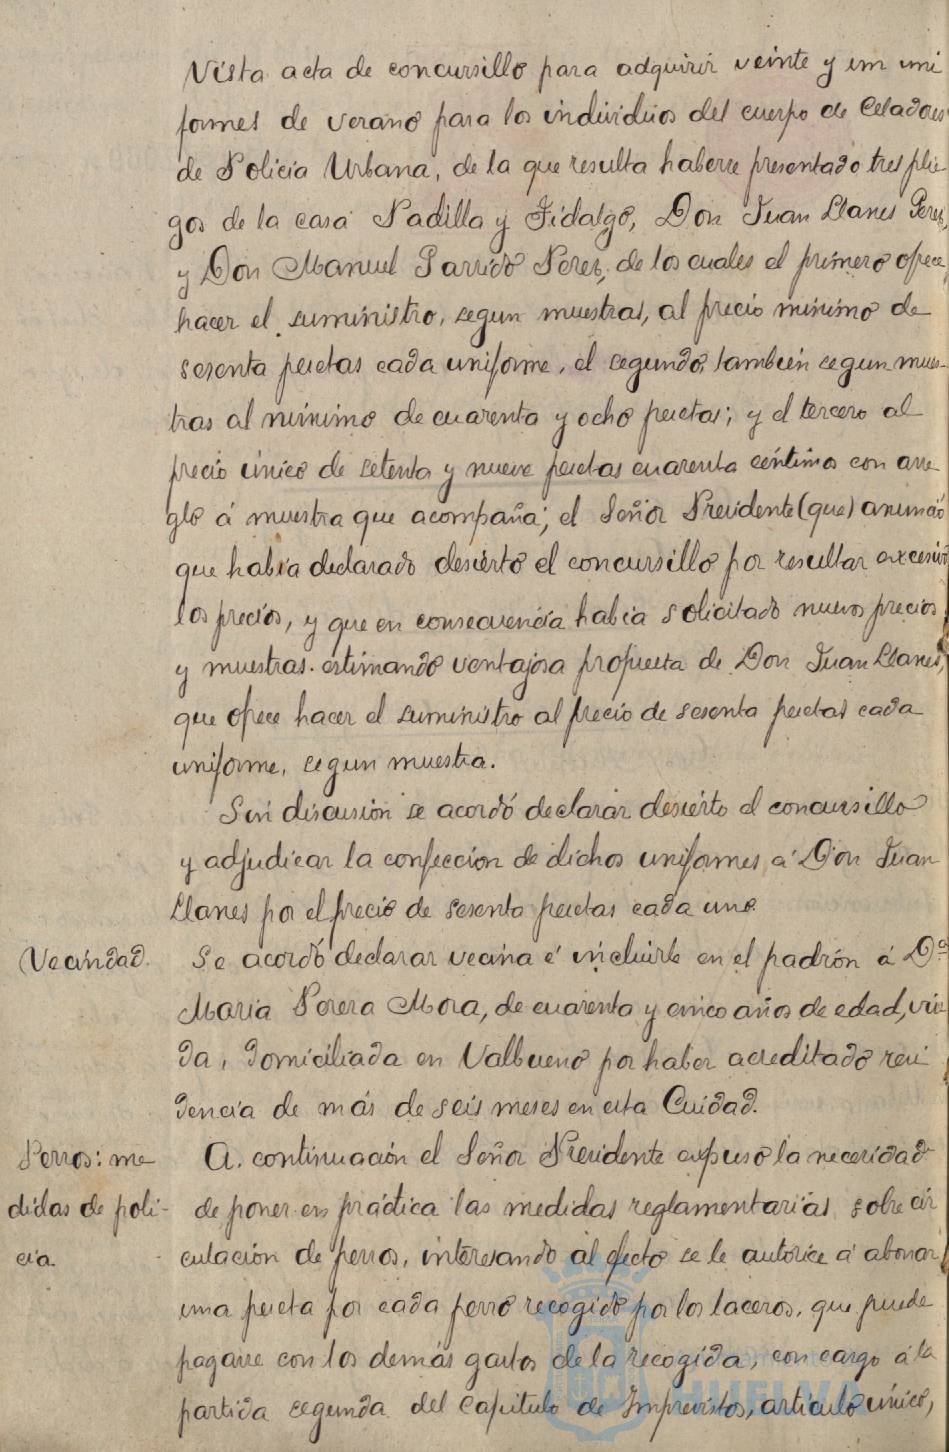 Vista acta de concursillo para adquirir veinte y un uni
formes de verano para los individuos del cuerpo de Celadores
de Policia Urbana, de la que resulta haberse presentado tres plie-
gos de la casa Padilla y Fidalgo, Don Juan Llanes Perez,
y Don Manuel Garrido Perez, de los cuales el primero ofrece
hacer el suministro, segun muestras, al precio minimo de
sesenta pesetas cada uniforme, el segundo, tambien segun mues-
tras al minimo de cuarenta y ocho pesetas; y el tercero al
precio único de setenta y nueve pesetas cuarenta céntimos con arre
glo á muestra que acompaña; el Señor Presidente (que) anunció
que habia declarado desierto el concursillo por resultar excesivos
los precios, y que en consecuencia habia solicitado nuevos precios
y muestras. estimando ventajosa propuesta de Don Juan Llanes,
que ofrece hacer el suministro al precio de sesenta pesetas cada
uniforme, segun muestra.
Sin discusión se acordó declarar desierto el concursillo
y adjudicar la confección de dichos uniformes á Don Juan
Llanes por el precio de sesenta pesetas cada uno.
Vecindad. Se acordó declarar vecina é incluirle en el padrón á Dª
Maria Perera Mora, de cuarenta y cinco años de edad, viu
da, domiciliada en Valbueno por haber acreditado resi
dencia de más de seis meses en esta Cuidad.
Perros: me A. continuación el Señor Presidente expuso la necesidad
didas de poli- de poner en práctica las medidas reglamentarias sobre cir
cia. culación de perros, interesando al efecto se le autorice á abonar
una peseta por cada perro recogido por los laceros, que puede
pagarse con los demás gastos de la recogida, con cargo á la
partida segunda del Capitulo de Imprevistos, articulo único,
HUELVA